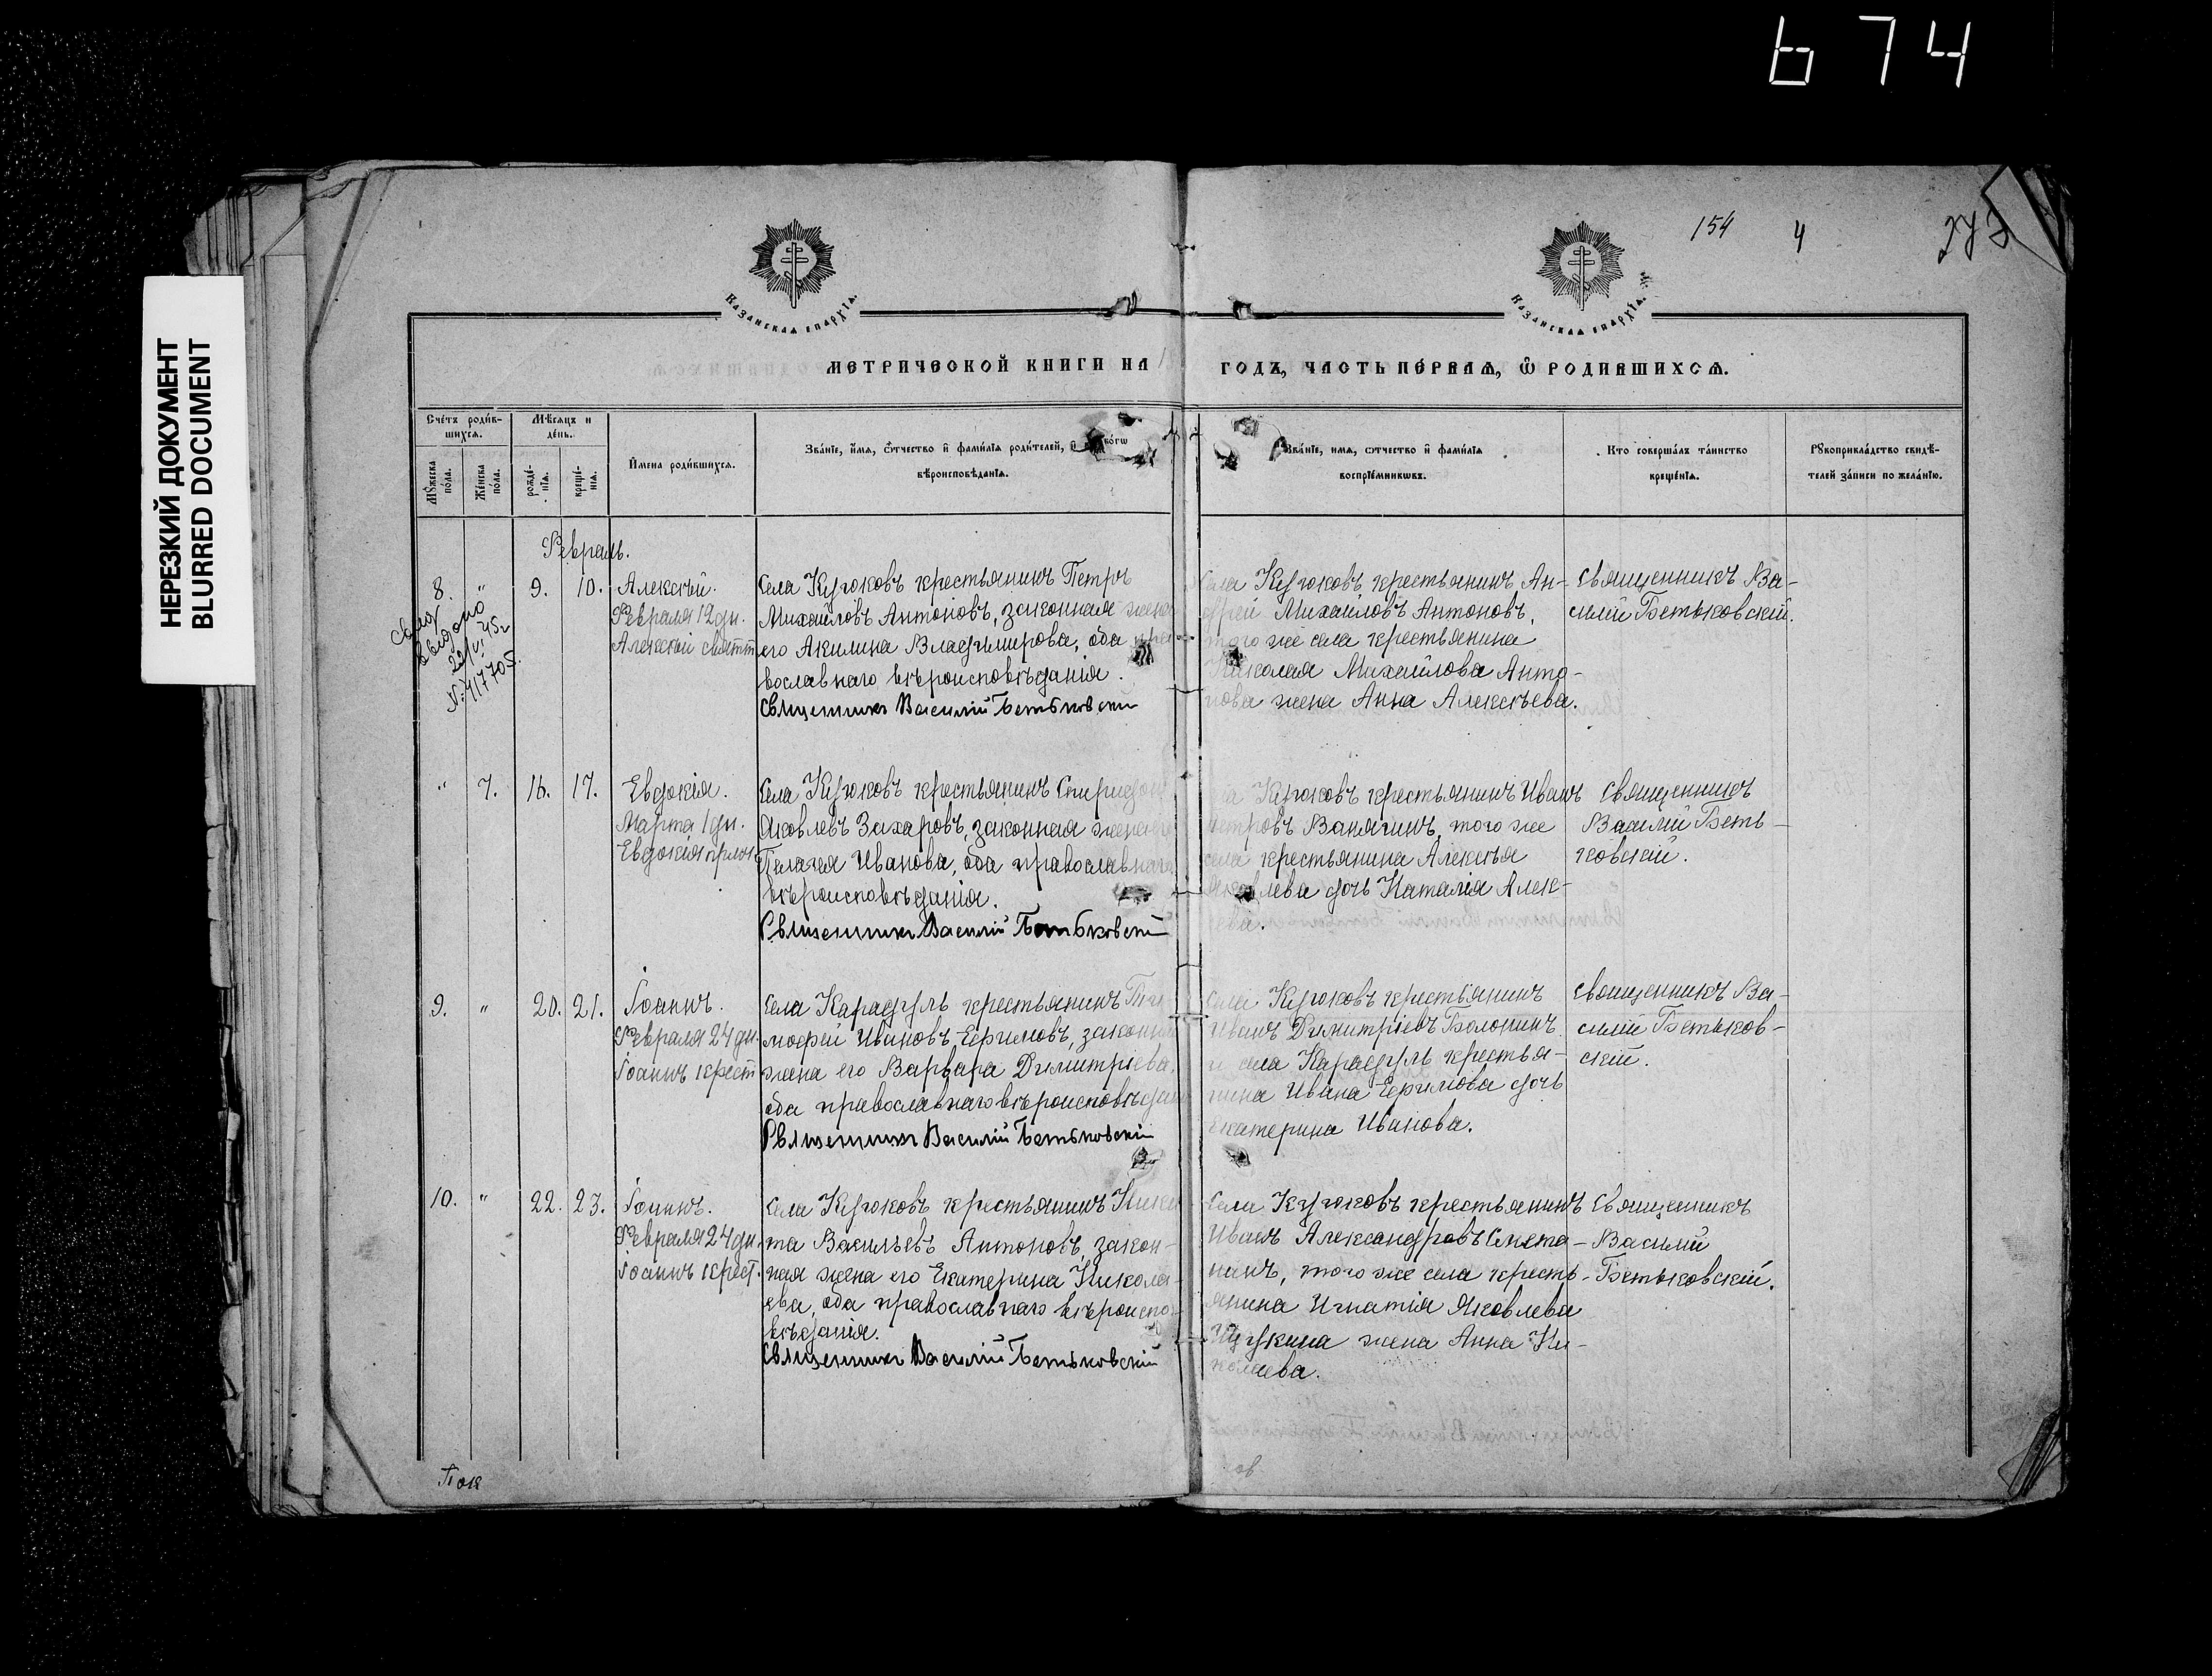 674
НЕРЕЗКИЙ ДОКУМЕНТ
BLURRED DOCUMENT
154 4
КАЗАНСКАЯ ЕПАРХІЯ.
КАЗАНСКАЯ ЕПАРХІЯ.
МЕТРИЧЕСКОЙ КНИГИ НА ГОДЪ, ЧАСТЬ ПЕ́РВАЯ, Ѿ РОДИВШИХСЯ.
Сче́тъ роди́в-
шихся.
Мѣсяцъ и
де́нь.
Му́жеска по́ла.
Же́нска по́ла.
рожде́-
нія.
креще́-
нія.
И́мена роди́вшихся.
Зва́ніе, и́мя, о́тчество и҆ фами́лія роди́телей, и҆
вѣроисповѣ́данія.
Зва́ніе, имя, отчество и҆ фами́лія
воспріе́мниковъ.
Кто соверша́лъ та́инство
креще́нія.
Рꙋкоприкла́дство свидѣ́-
телей за́писи по жела́нію.
Февраль.
8. " 9. 10.
22/VI 45 г
Алексѣй.
Февраля 12 дн.
Алексѣй святит
Села Кугюковъ крестьянинъ Петръ
Михайловъ Антоновъ, законная жена
его Акилина Владимирова, оба
вославнаго вѣроисповѣданія.
Священникъ Василій Бетьковскій
Села Кугюковъ крестьянинъ Ан-
дрей Михайловъ Антоновъ,
того же села крестьянина
Николая Михайлова Анто-
нова жена Анна Алексѣева.
Священникъ Ва-
силій Бетьковскій.
" 7. 16. 17.
Евдокія.
Марта 1 дн.
Евдокія прпм.
Села Кугюковъ крестьянинъ Спиридон
Яковлевъ Захаровъ, законная жена
Пелагея Иванова, оба православнаго
вѣроисповѣданія.
Священникъ Василій Бетьковскій
Кугюковъ крестьянинъ Иванъ
Петровъ Ванягинъ, того же
села крестьянина Алексѣя
Яковлева дочь Наталія Алек-
ева.
Священникъ
Василій Беть-
ковскій.
9. " 20. 21.
Іоаннъ.
Февраля 24 дн.
Іоаннъ крест
Села Карадуль крестьянинъ Ти-
мофей Ивановъ Ефимовъ, законная
жена его Варвара Димитріева,
оба православнаго вѣроисповѣдан
Священникъ Василій Бетьковскій
Села Кугюковъ крестьянинъ
Иванъ Димитріевъ Болонинъ
и села Карадуль крестья-
нина Ивана Ефимова дочь
Екатерина Иванова.
Священникъ Ва-
силій Бетьков-
скій.
10. " 22. 23.
Іоаннъ.
Февраля 24 дн.
Іоаннъ крест.
Села Кугюковъ крестьянинъ Ники-
та Васильевъ Антоновъ, закон-
ная жена его Екатерина Никола-
ева, оба православнаго вѣроиспо-
вѣданія.
Священникъ Василій Бетьковскій
Села Кугюковъ крестьянинъ
Иванъ Александровъ Смета-
нинъ, того же села кресть-
янина Игнатія Яковлева
жена Анна Ни-
колаева.
Священникъ
Василій
Бетьковскій.